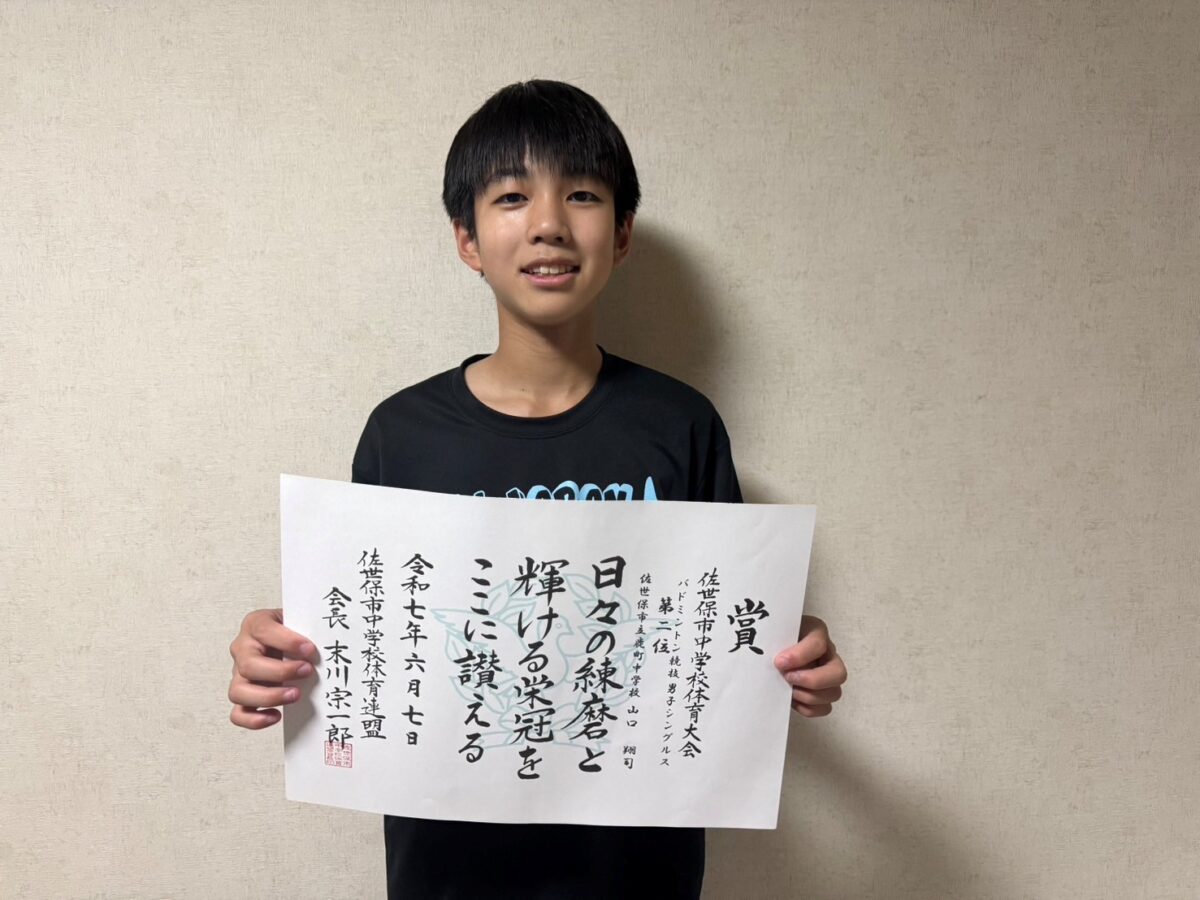 賞
佐世保市中学校体育大会
バドミントン競技 男子シングルス
第二位
佐世保市立鹿町中学校 山口 翔司
日々の練磨と
輝ける栄冠を
ここに讃える
令和七年六月七日
佐世保市中学校体育連盟
会長 末川宗一郎